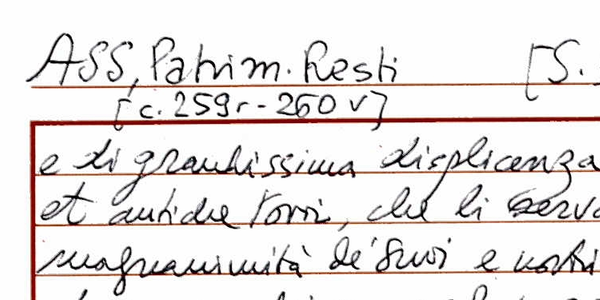 ASS, Patrim. Resti [S.
[c. 259r - 260v]
e di grandissima displicenza
et antiche torri, che li serv
magnanimità de' suoi e nostri